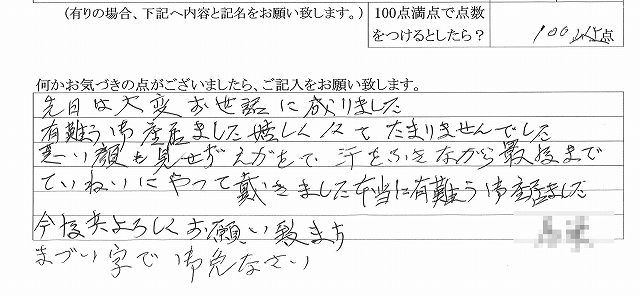 (有りの場合、下記へ内容と記名をお願い致します。)
100点満点で点数
をつけるとしたら?
100以上点
何かお気づきの点がございましたら、ご記入をお願い致します。
先日は大変お世話に成りました
有難う御座居ました嬉しくてたまりませんでした
悪い顔も見せずえがをで汗をふきながら最後まで
ていねいにやって戴きました本当に有難う御座居ました
今後共よろしくお願い致ます
まづい字で御免なさい